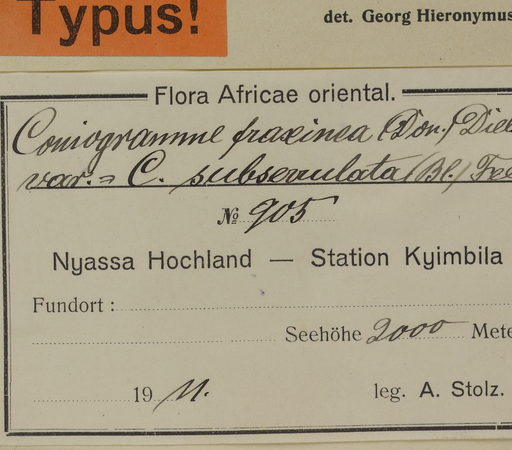 Typus!
det. Georg Hieronymus
Flora Africae oriental.
Coniogramme fraxinea (Don.) Diel
var. = C. subserrulata (Bl.) Fée
№ 905
Nyassa Hochland — Station Kyimbila
Fundort :
Seehöhe 2000 Mete
19 11.
leg. A. Stolz.